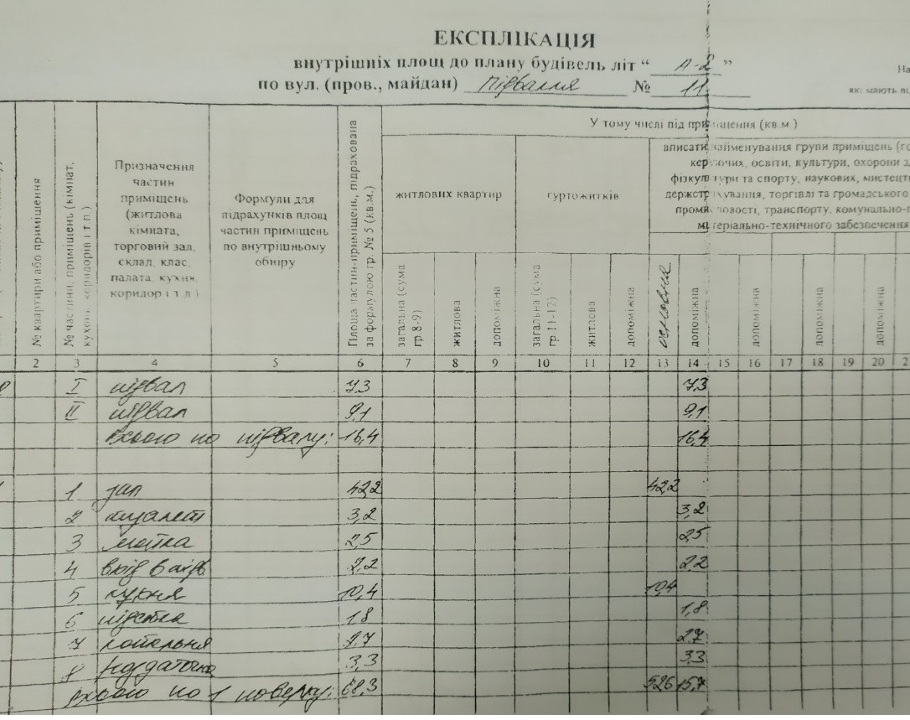 ЕКСПЛІКАЦІЯ
внутрішніх площ до плану будівель літ “ А-2 ”
по вул. (пров., майдан) Підвальна № 11
На
які мають ві
№ квартири або приміщення
№ частини, приміщень (кімнат, кухонь, коридорів і т.п.)
Призначення частин приміщень (житлова кімната, торговий зал, склад, клас, палата, кухня, коридор і т.д.)
Формули для підрахунків площ частин приміщень по внутрішньому обміру
Площа частин-приміщень, підрахована за формулою гр. № 5 (кв.м.)
У тому числі під приміщення (кв.м.)
житлових квартир
гуртожитків
вписати найменування групи приміщень (го
керуючих, освіти, культури, охорони з
фізкультури та спорту, наукових, мистецт
держстрахування, торгівлі та громадського
промисловості, транспорту, комунально-
матеріально-технічного забезпечення
загальна (сума гр 8-9)
житлова
допоміжна
загальна (сума гр 11-12)
житлова
допоміжна
основна
допоміжна
допоміжна
допоміжна
допоміжна
2 3 4 5 6 7 8 9 10 11 12 13 14 15 16 17 18 19 20 2
I підвал 7,3 7,3
II підвал 9,1 9,1
Всього по підвалу: 16,4 16,4
1 зал 42,2 42,2
2 туалет 3,2 3,2
3 мийка 2,5 2,5
4 вхід в підв 2,2 2,2
5 кухня 10,4 10,4
6 1,8 1,8
7 котельня 2,7 2,7
8 3,3 3,3
Всього по 1 поверху: 68,3 52,6 15,7